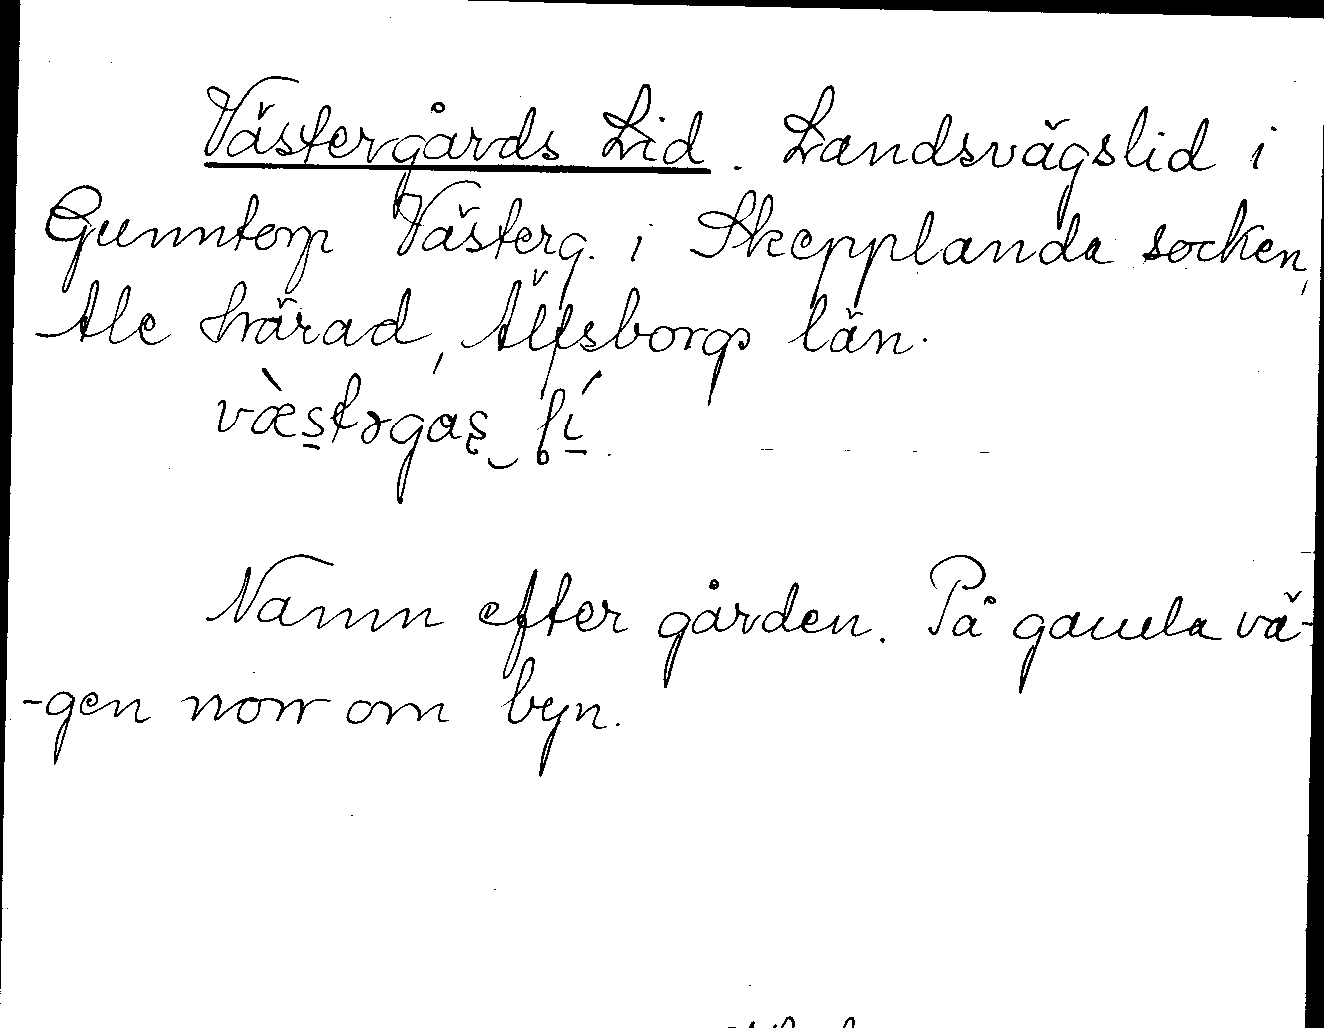 Västergårds Lid. Landsvägslid i
Gunntorp Västerg. i Skepplanda socken,
Ale härad, Älfsborgs län.
væ̀stərgaʂ‿lí.
Namn efter gården. På gamla vä-
-gen norr om byn.